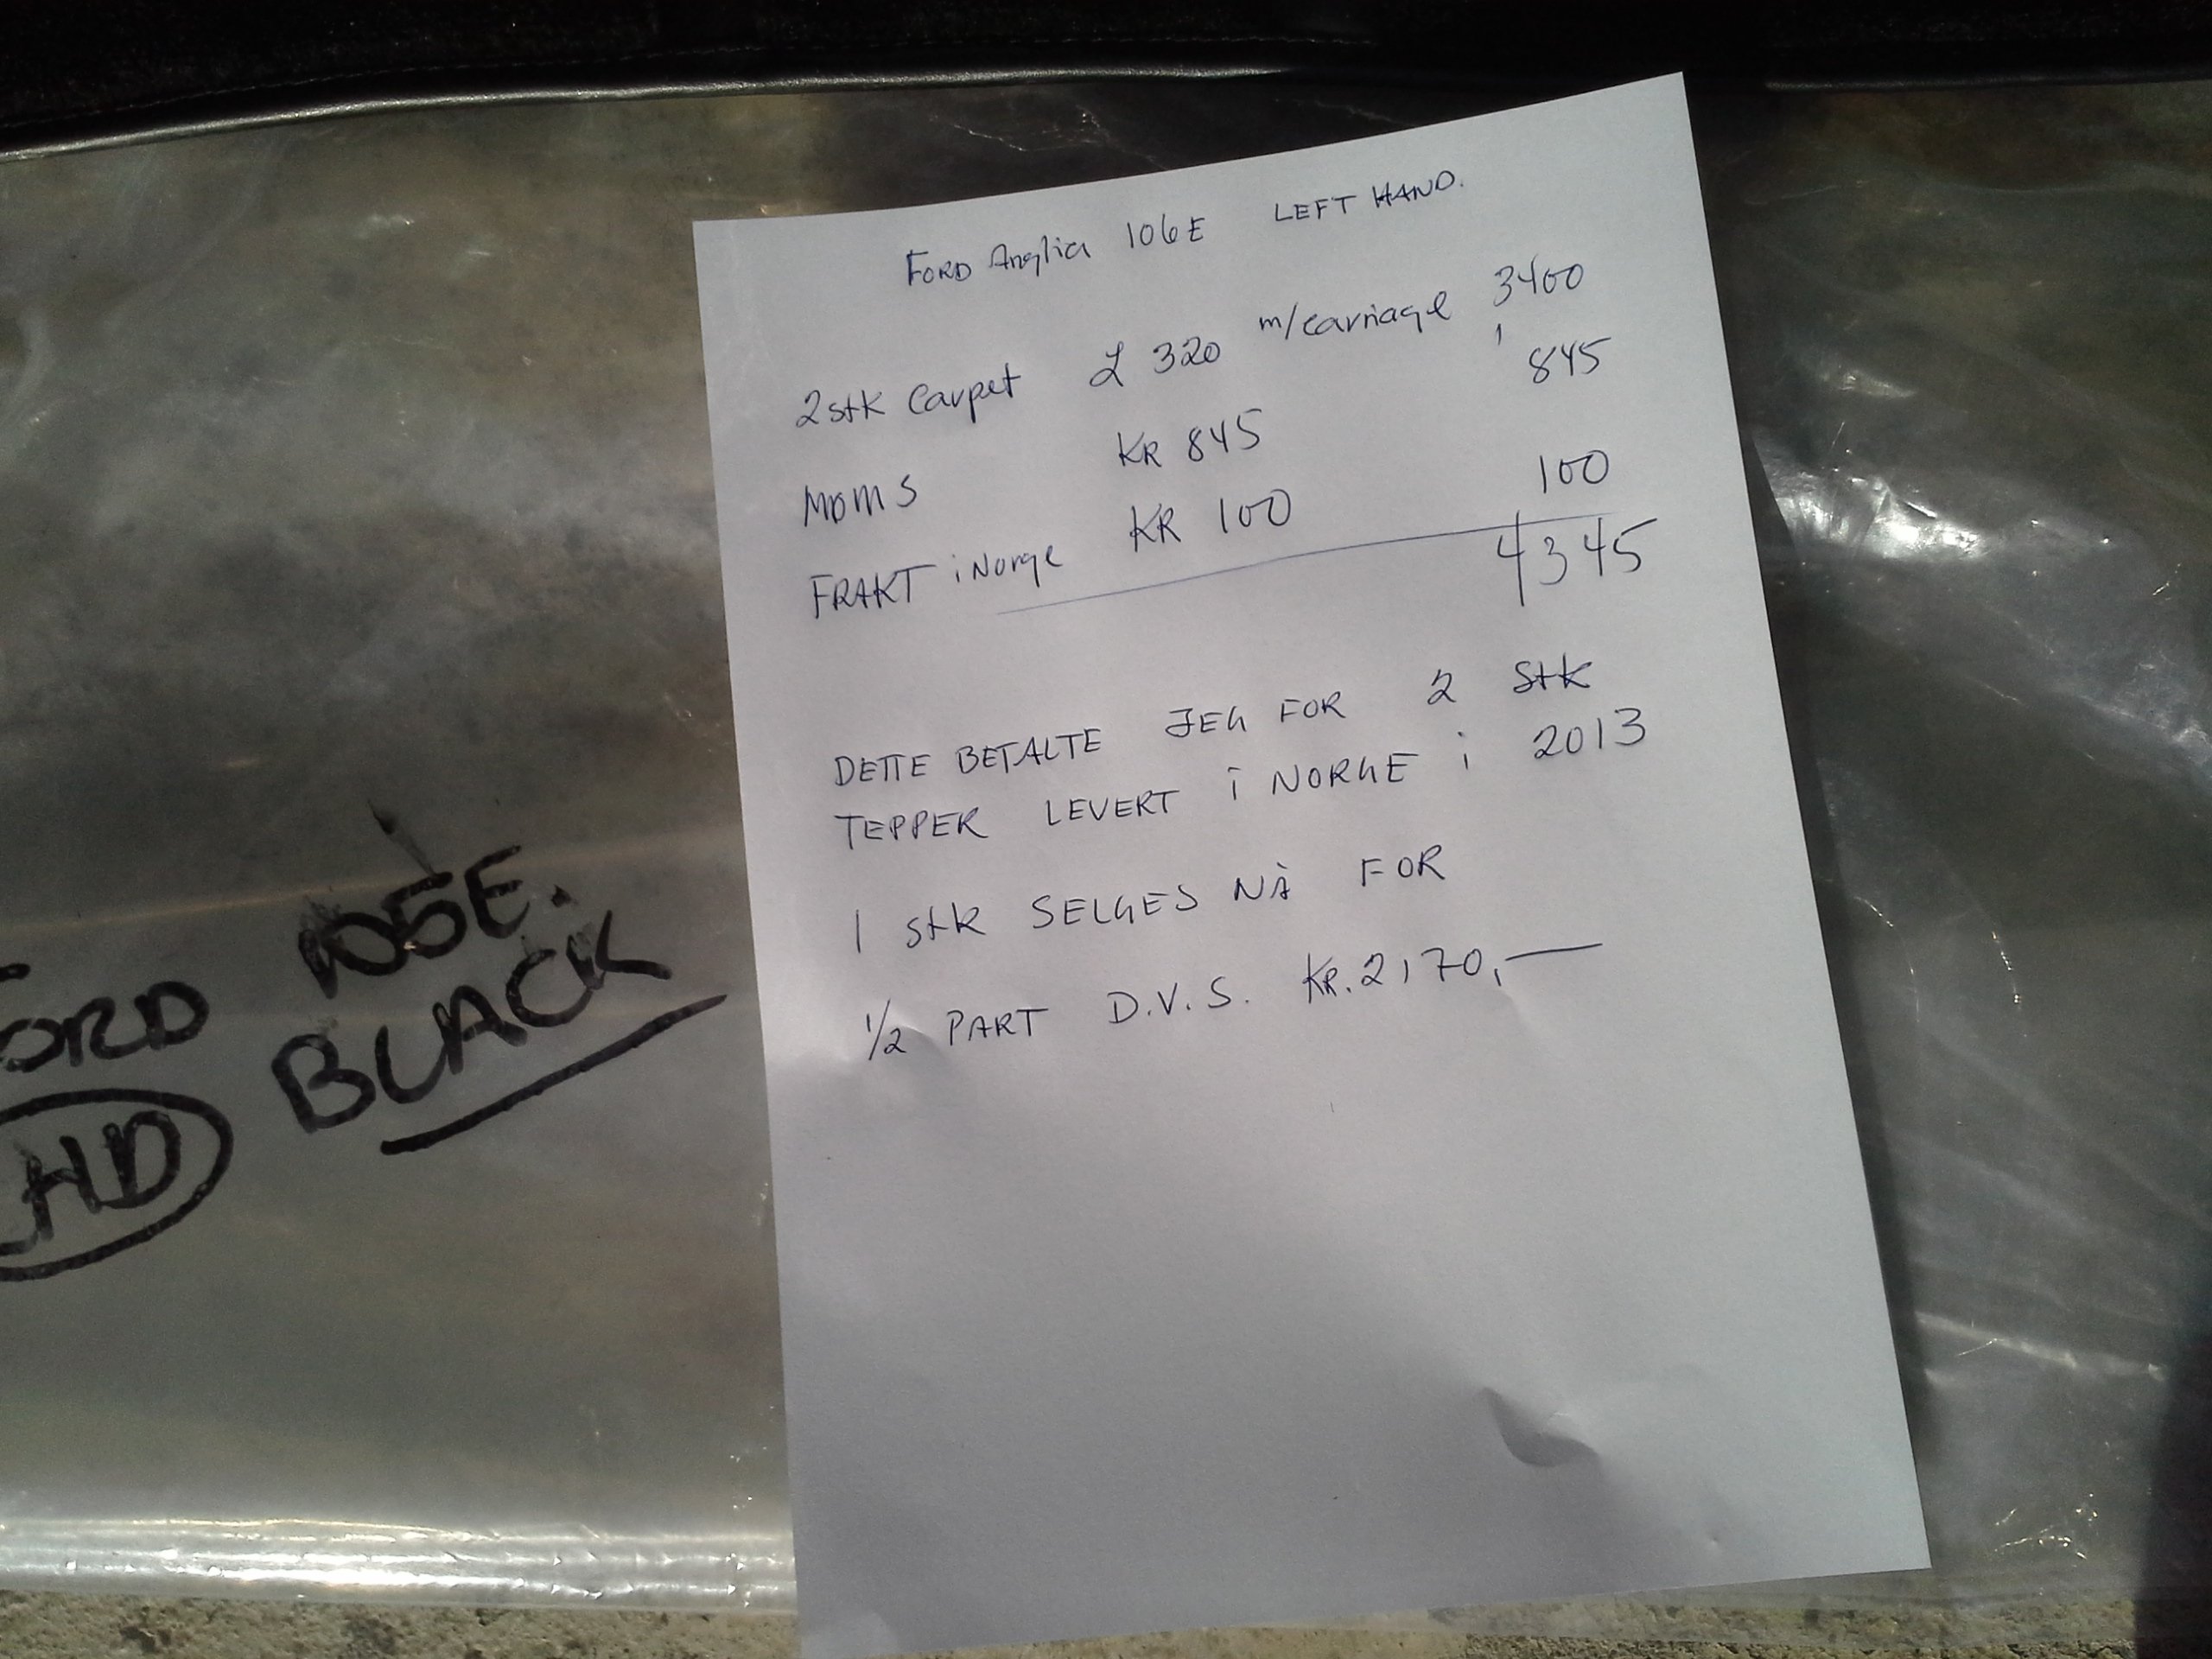 FORD Anglia 106E LEFT HAND.
2 stk Carpet £ 320 m/carriage 3400
MOMS KR 845 845
FRAKT i Norge KR 100 100
4345
DETTE BETALTE JEG FOR 2 Stk
TEPPER LEVERT i NORGE i 2013
1 stk SELGES NÅ FOR
1/2 PART D.V.S. KR. 2170,—
FORD 105E.
BLACK
HD